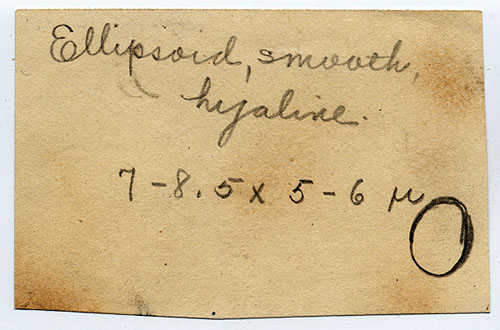 Ellipsoid, smooth,
hyaline.
7-8.5 x 5-6 µ